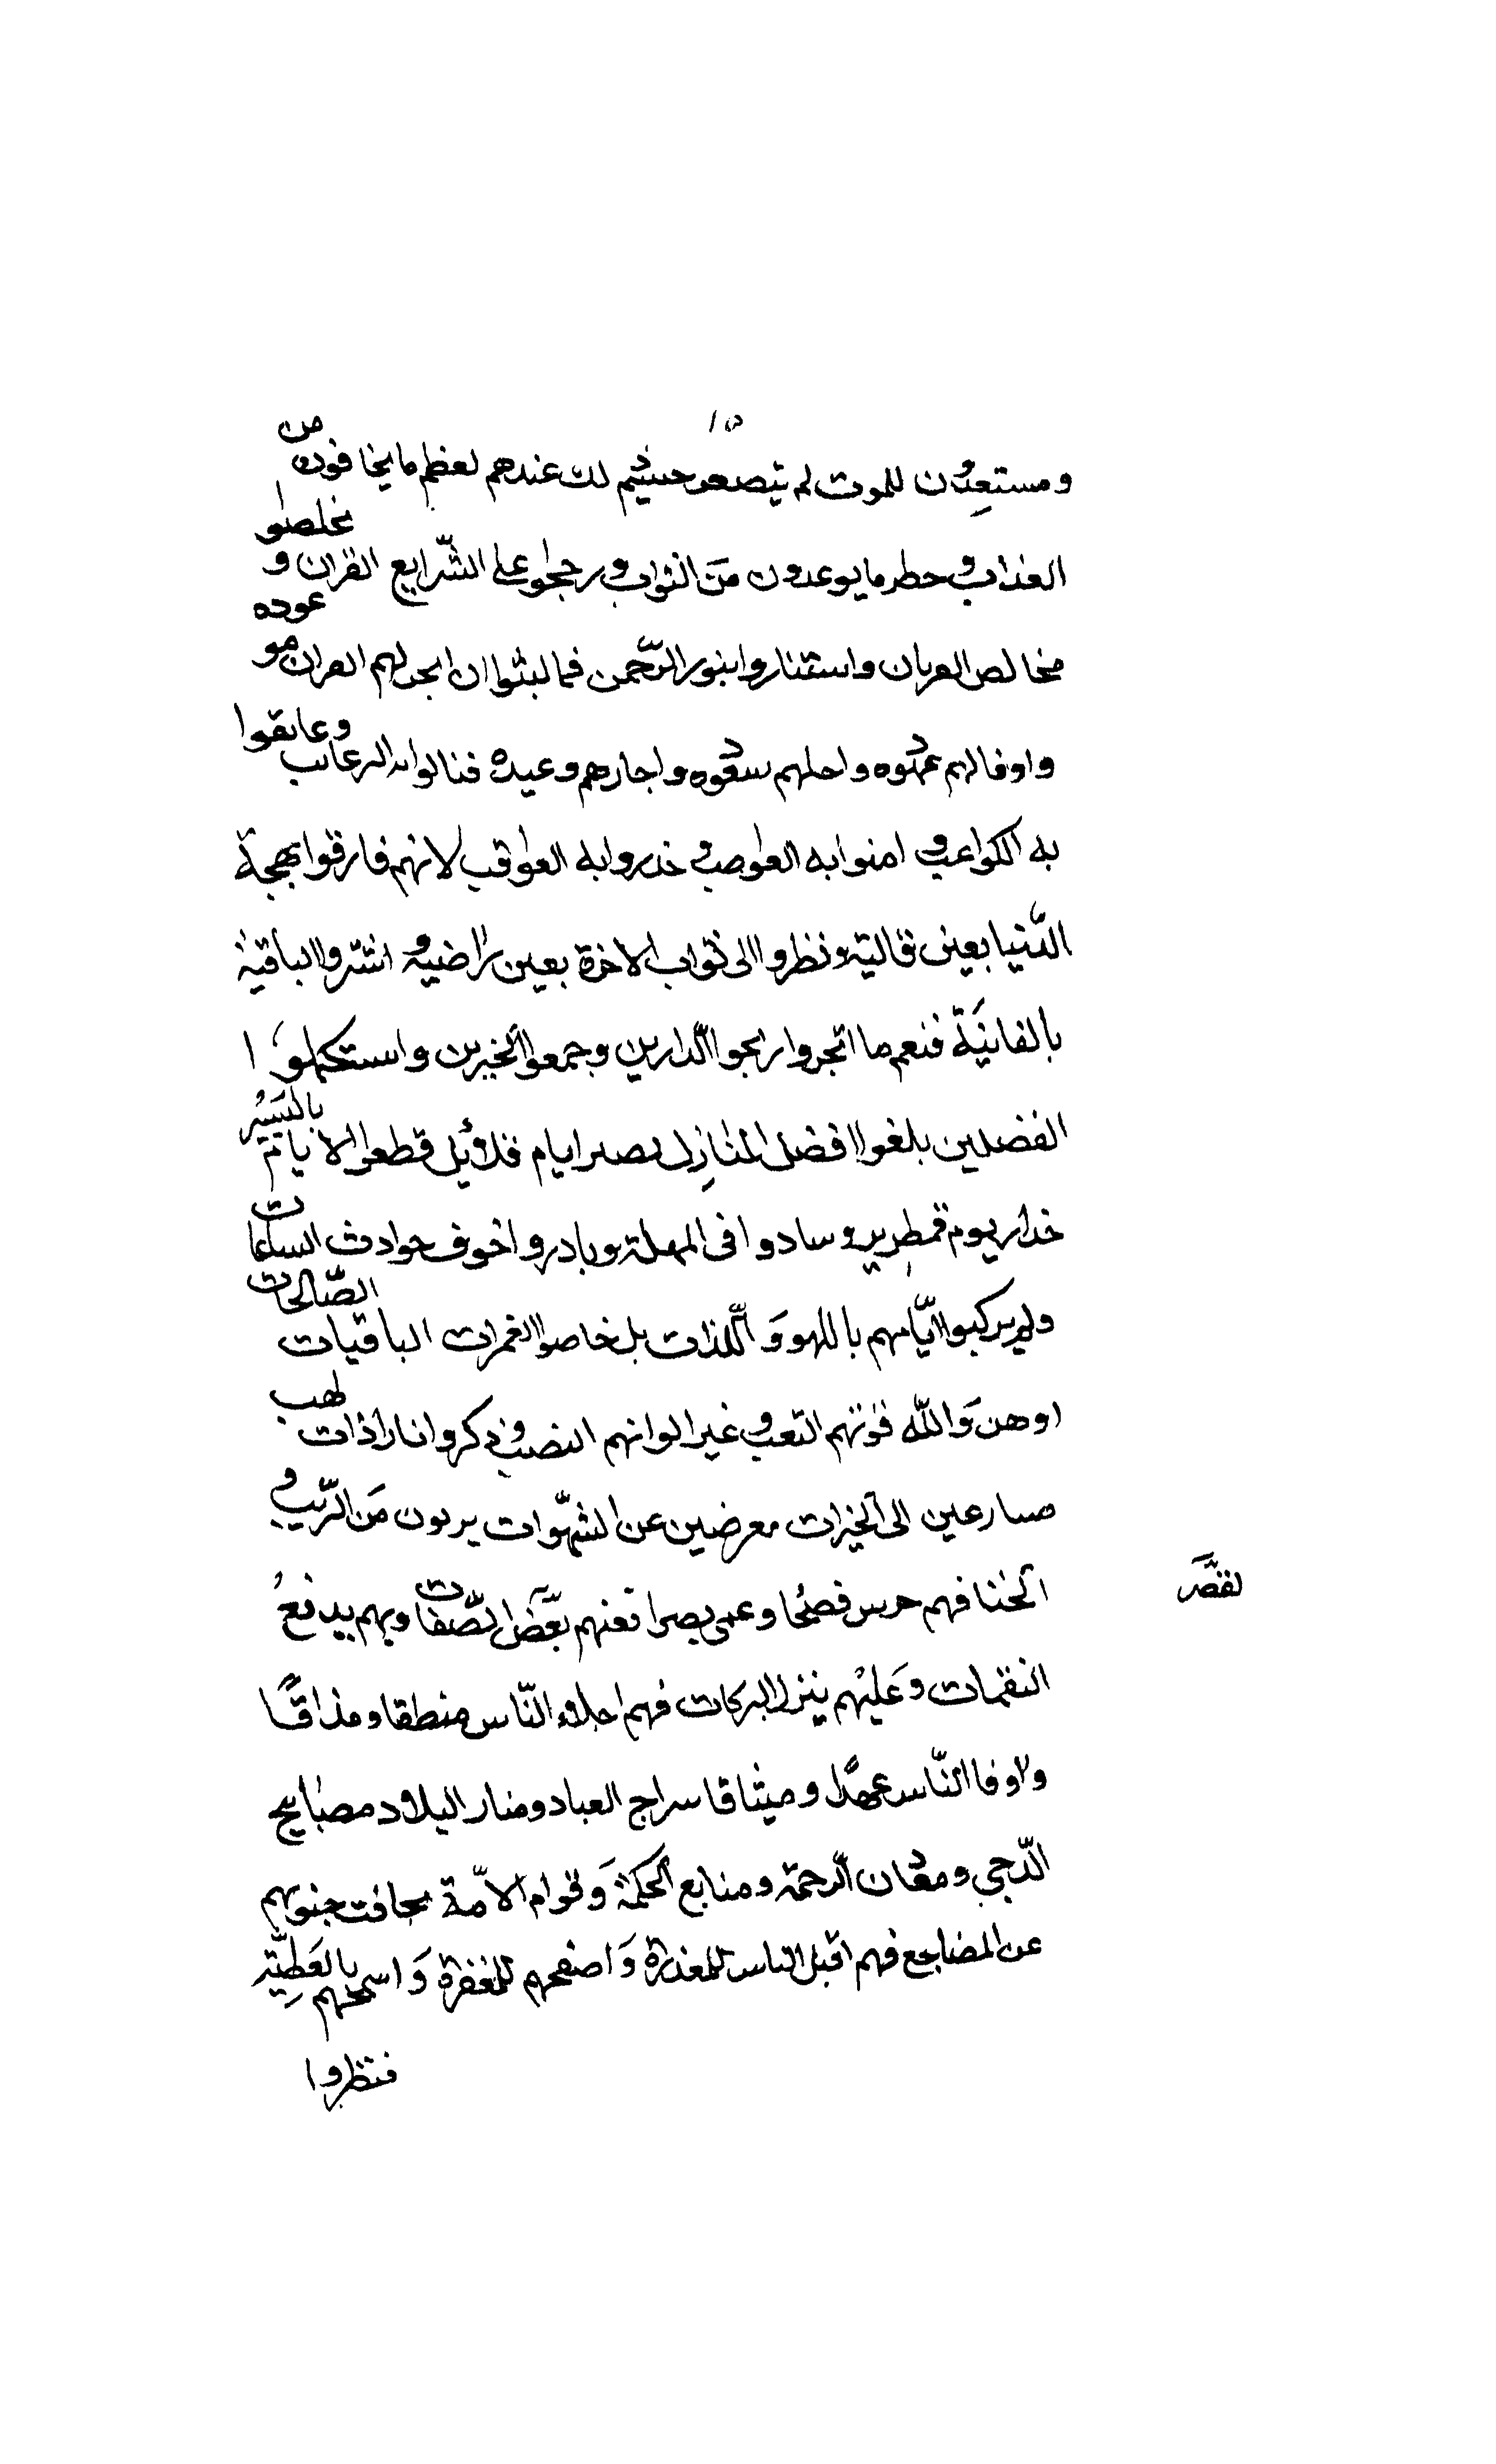 ١٥
ومستعدون للموت لم تتصعر جسيم ذلك عندهم لعظم ما يخافون من
العذاب وخطر ما يوعدون من الثواب ورجحوا على الشرايع القران و نخلصوا
مخالص القربان واستناروا بنور الرحمن فما لبثوا ان انجز لهم القران موعوده
واوفا لهم عهوده واحلهم سعوده واجارهم وعيده فنالوا به الرغائب وعانقوا
به الكواعب و امنوا به العواصب و حذروا به العواقب لانهم فارقوا بهجة
الدنيا بعين قالية ونظروا الى ثواب الاخرة بعين راضية و اشتروا الباقية
بالفانية فنعم ما اتجروا ربحوا الدارين وجمعوا الخيرين واستكملوا
الفضلين بلغوا افضل المنازل بصبر ايام قلائل قطعوا الايام باليسير
حذار يوم قمطرير وسادوا في المهلة وبادروا خوف حوادث الساعات
ولم يركبوا ايامهم باللهو و اللذات بل خاضوا الغمرات الباقيات الصالحات
اوهن والله قوتهم التعب و غير الوانهم النصب و ذكروا نارا ذات لهب
مسارعين الى الخيرات معرضين عن الشهوات بريون من الريب و
الخنا فهم خرس فصحا وعمى بصرا فعنهم تقصر الصفات وبهم يدفع
لقصر
النقمات وعليهم ينزل البركات فهم احلاء الناس منطقا ومذاقا
واوفا الناس عهدا وميثاقا سراج العباد ومنار البلاد مصابيح
الدجى ومعادن الرحمة ومنابع الحكمة وقوام الامة تجافت جنوبهم
عن المضاجع فهم اقبل الناس للمعذرة و اصفحهم للمغفرة و اسمحهم بالعطية
فنظروا